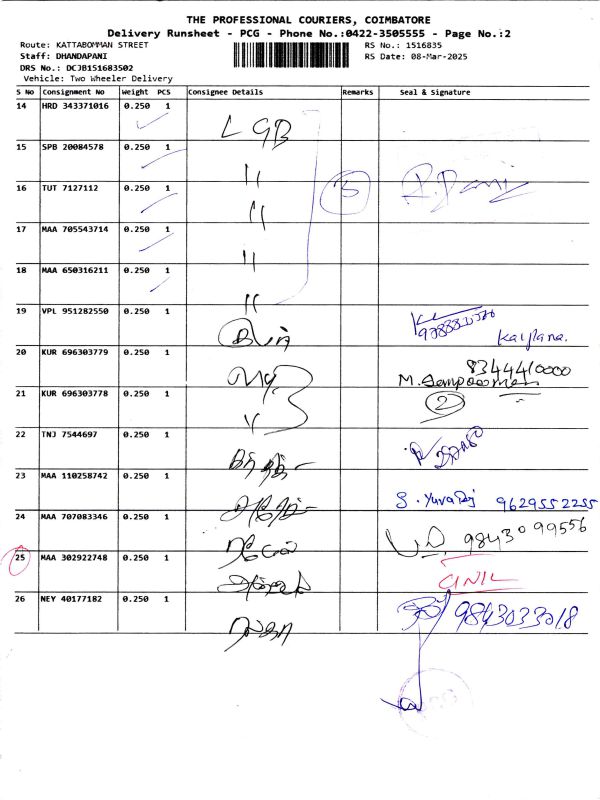 THE PROFESSIONAL COURIERS, COIMBATORE
Delivery Runsheet - PCG - Phone No.:0422-3505555 - Page No.:2
Route: KATTABOMMAN STREET RS No.: 1516835
Staff: DHANDAPANI RS Date: 08-Mar-2025
DRS No.: DCJB151683502
Vehicle: Two Wheeler Delivery
S No Consignment No Weight PCS Consignee Details Remarks Seal & Signature
14 HRD 343371016 0.250 1 LGB
15 SPB 20084578 0.250 1 "
16 TUT 7127112 0.250 1 " 5
17 MAA 705543714 0.250 1 "
18 MAA 650316211 0.250 1 "
19 VPL 951282550 0.250 1
20 KUR 696303779 0.250 1 8344410000
21 KUR 696303778 0.250 1 " 2
22 TNJ 7544697 0.250 1
23 MAA 110258742 0.250 1 S. Yuvaraj 9629552255
24 MAA 707083346 0.250 1 98430 99556
25 MAA 302922748 0.250 1
26 NEY 40177182 0.250 1 9843033018